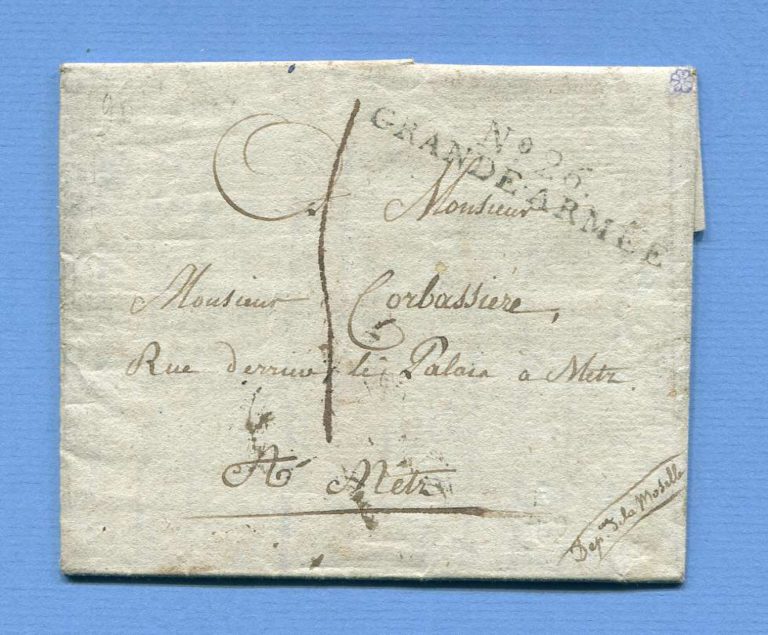 No 26.
GRANDE·ARMÉE
A Monsieur
Monsieur Corbassiere,
Rue derriere le Palais a Metz
A Metz
Depart de la Moselle